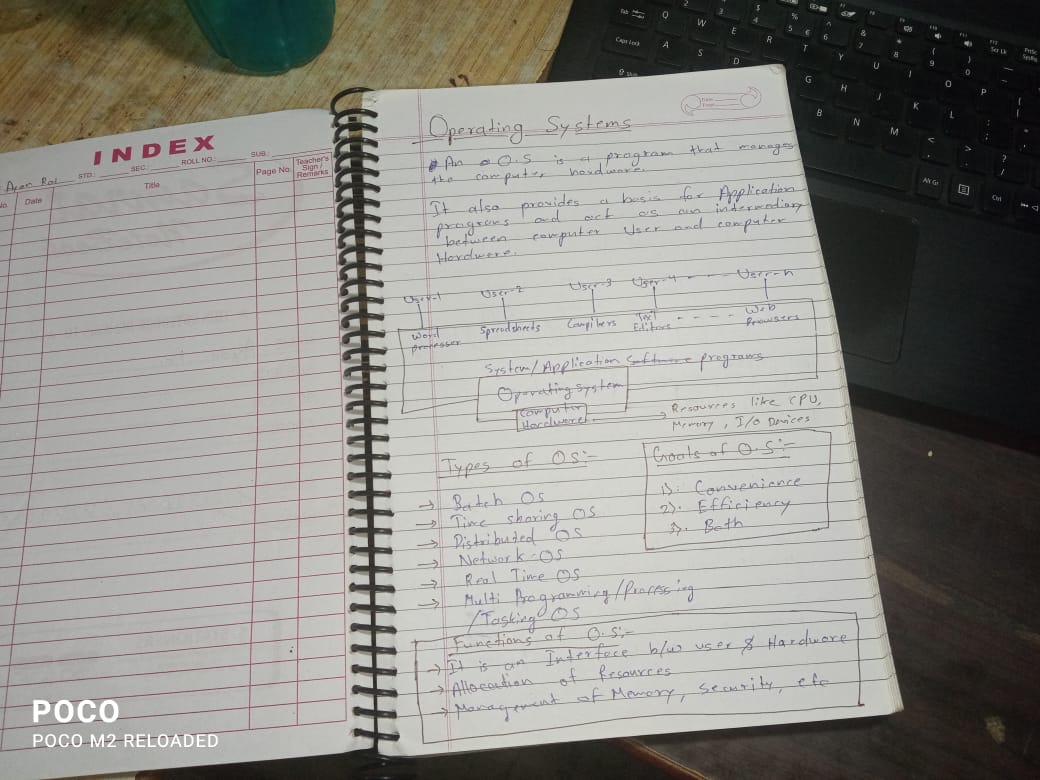 INDEX
STD.: SEC.: ROLL NO.: SUB.:
No. Date Title Page No. Teacher's Sign / Remarks
Operating Systems
An O.S is a program that manages
the computer hardware.
It also provides a basis for Application
programs and act as an intermediary
between computer User and computer
Hardware.
User-1 User-2 User-3 User-4 - - - - User-n
Word processer Spreadsheets Compilers Text Editors - - - - Web Browsers
System/Application software programs
Operating system
Computer Hardware
→ Resources like CPU,
Memory, I/O Devices
Types of OS:-
→ Batch OS
→ Time sharing OS
→ Distributed OS
→ Network-OS
→ Real Time OS
→ Multi Programming/Processing
/Tasking OS
Goals of O.S:-
1). Convenience
2). Efficiency
3). Both
Functions of O.S:-
→ It is an Interface b/w user & Hardware
→ Allocation of Resources
→ Management of Memory, Security, etc
POCO
POCO M2 RELOADED